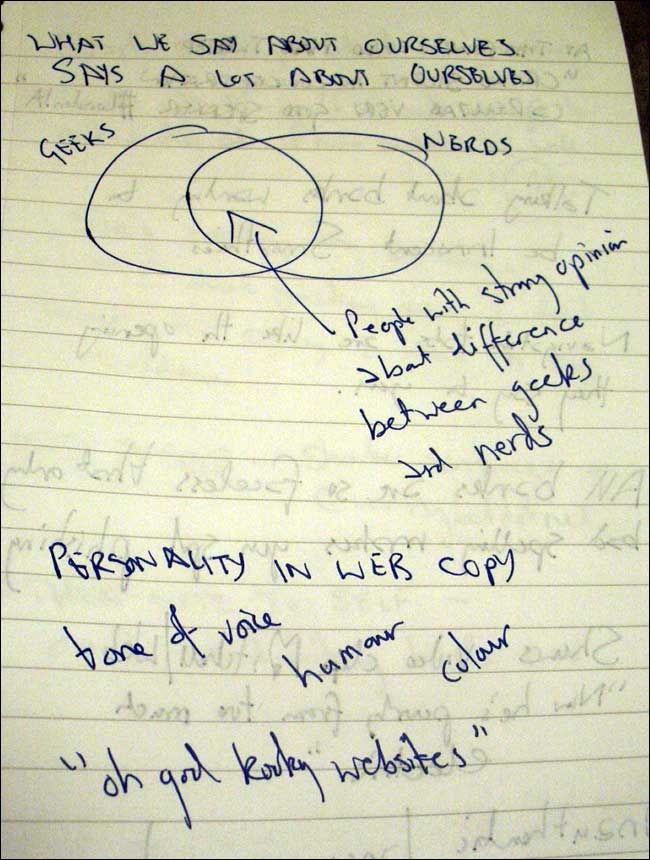 WHAT WE SAY ABOUT OURSELVES
SAYS A LOT ABOUT OURSELVES
GEEKS
NERDS
People with strong opinion
about difference
between geeks
and nerds
PERSONALITY IN WEB COPY
tone of voice
humour
colour
"oh god kooky websites"